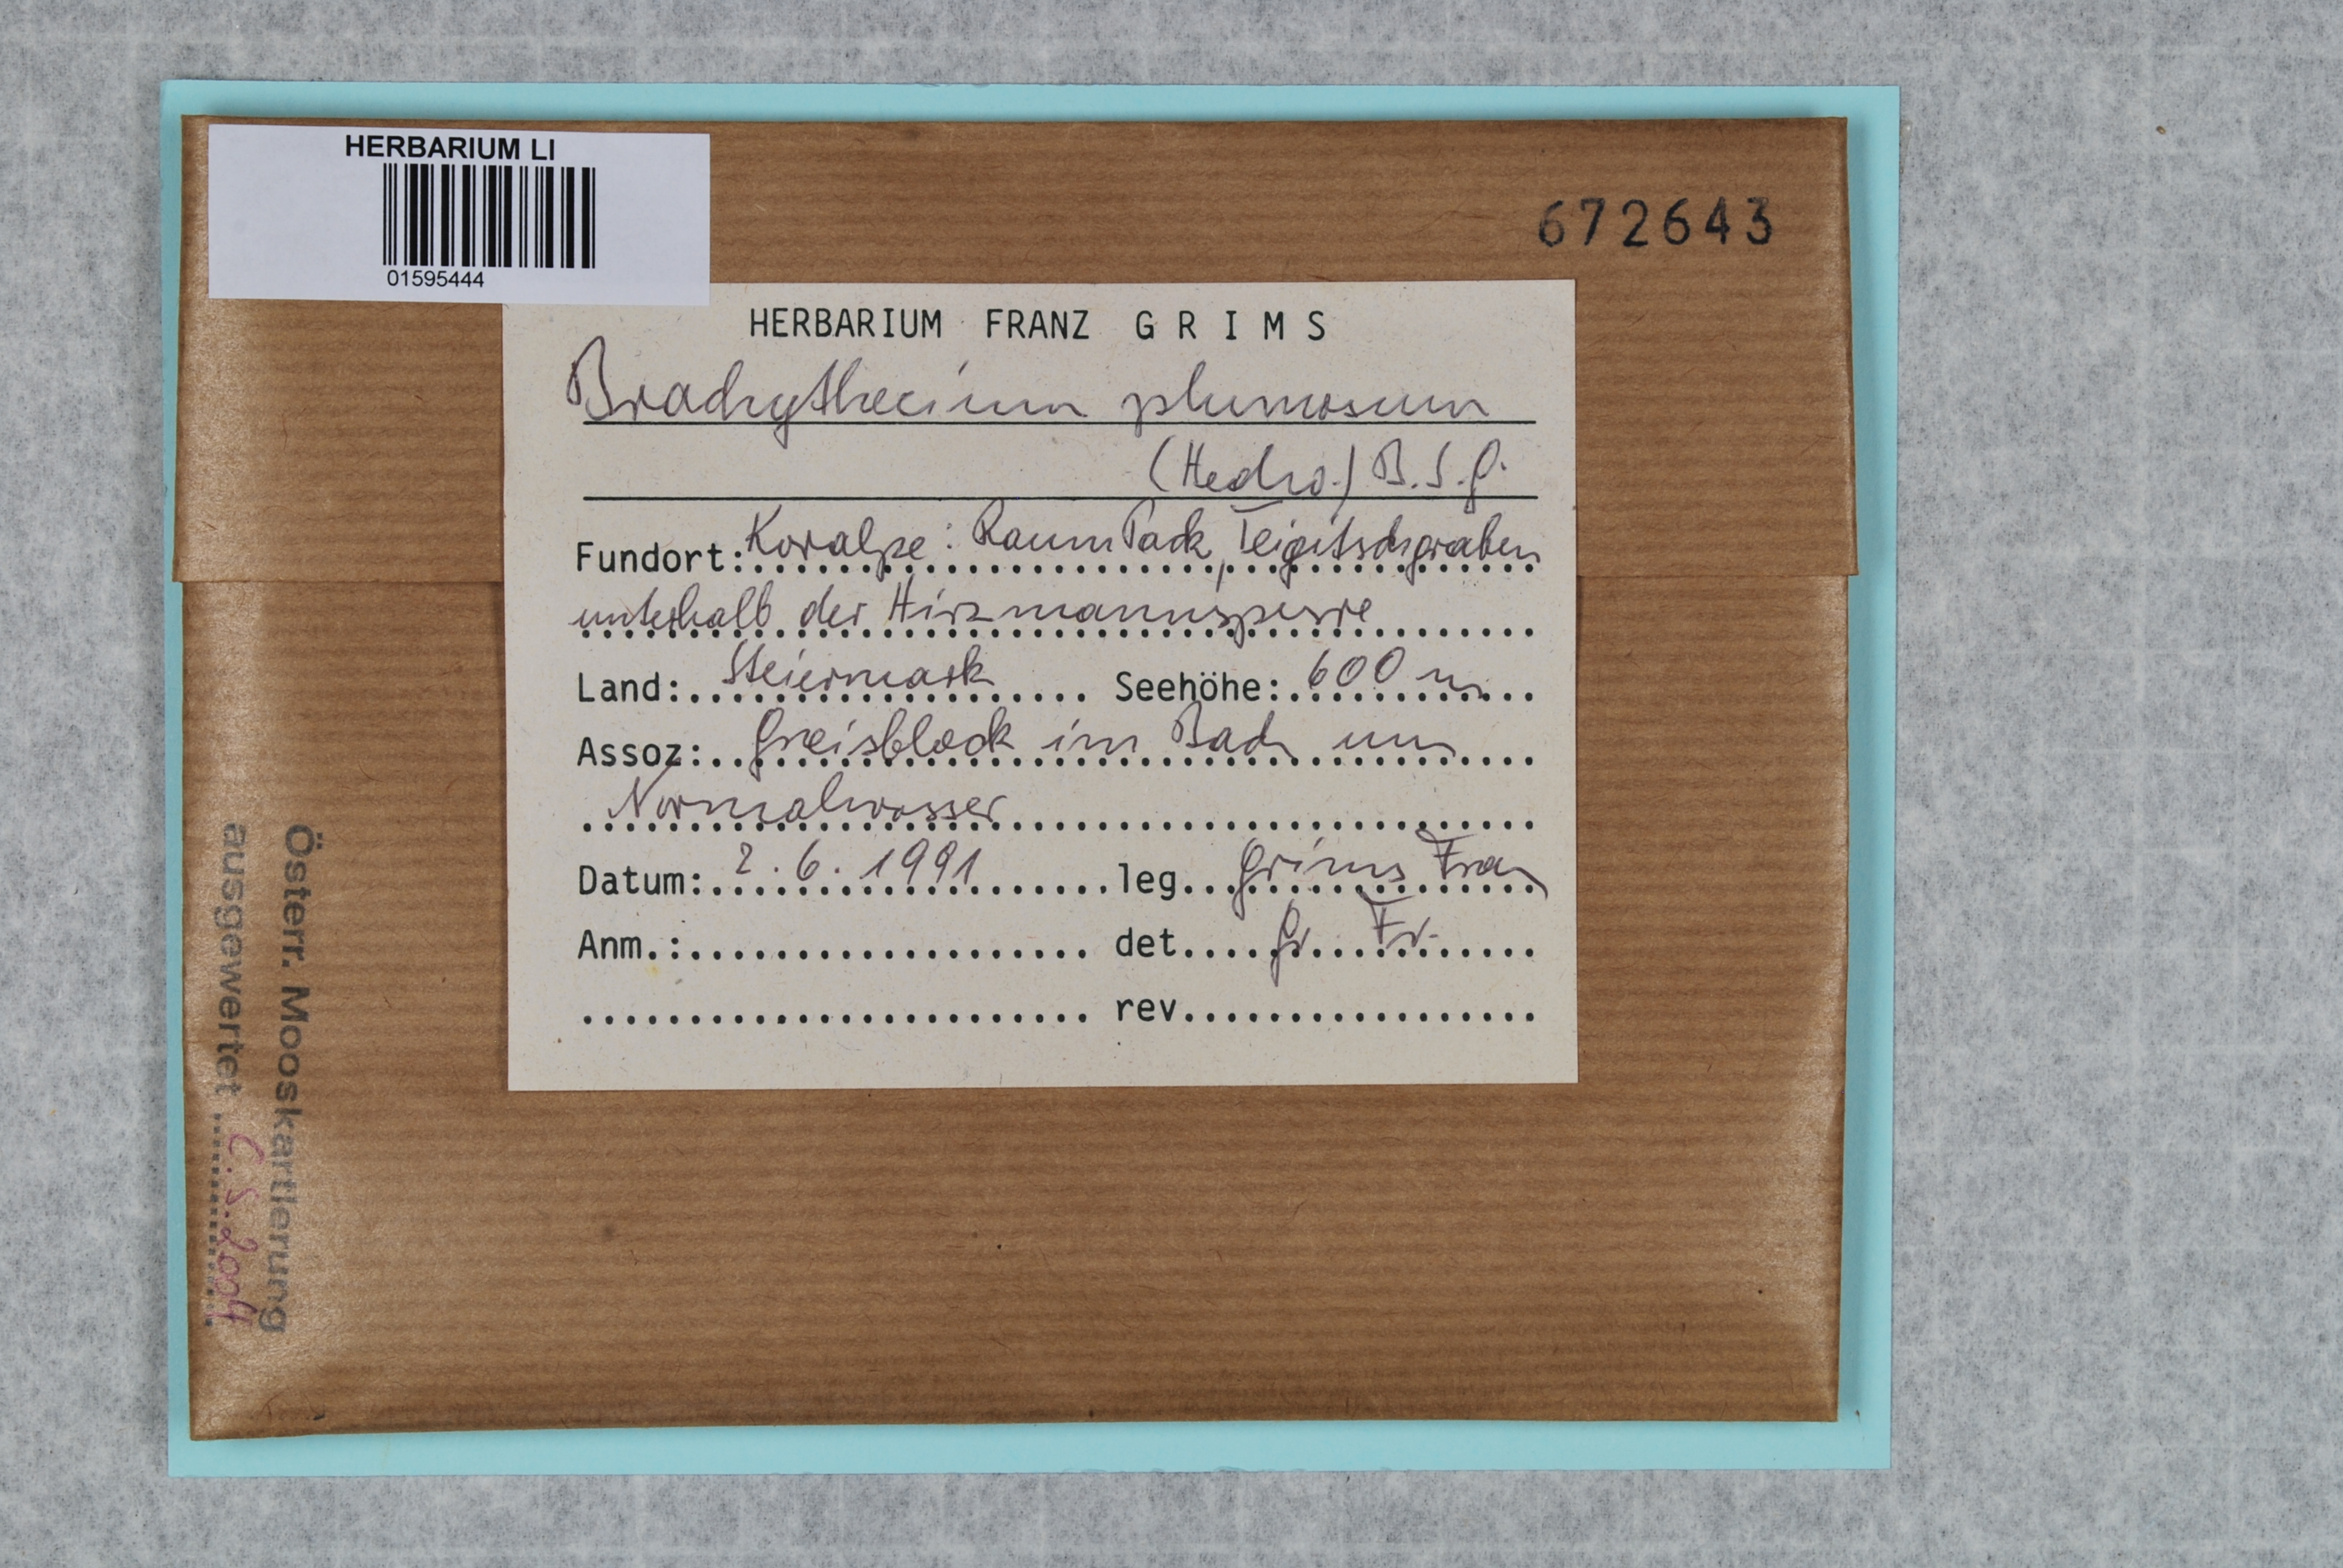 HERBARIUM LI
01595444
672643
HERBARIUM FRANZ GRIMS
Brachythecium plumosum
(Hedw.) B.S.G.
Fundort: Koralpe: Raum Pack, Teigitschgraben
unterhalb der Hirzmannsperre
Land: Steiermark Seehöhe: 600 m
Assoz: Gneisblock im Bach um
Normalwasser
Datum: 2.6.1991 leg. Grims Franz
Anm.: det. Gr. Fr.
rev.
Österr. Mooskartierung
ausgewertet C.S.2004